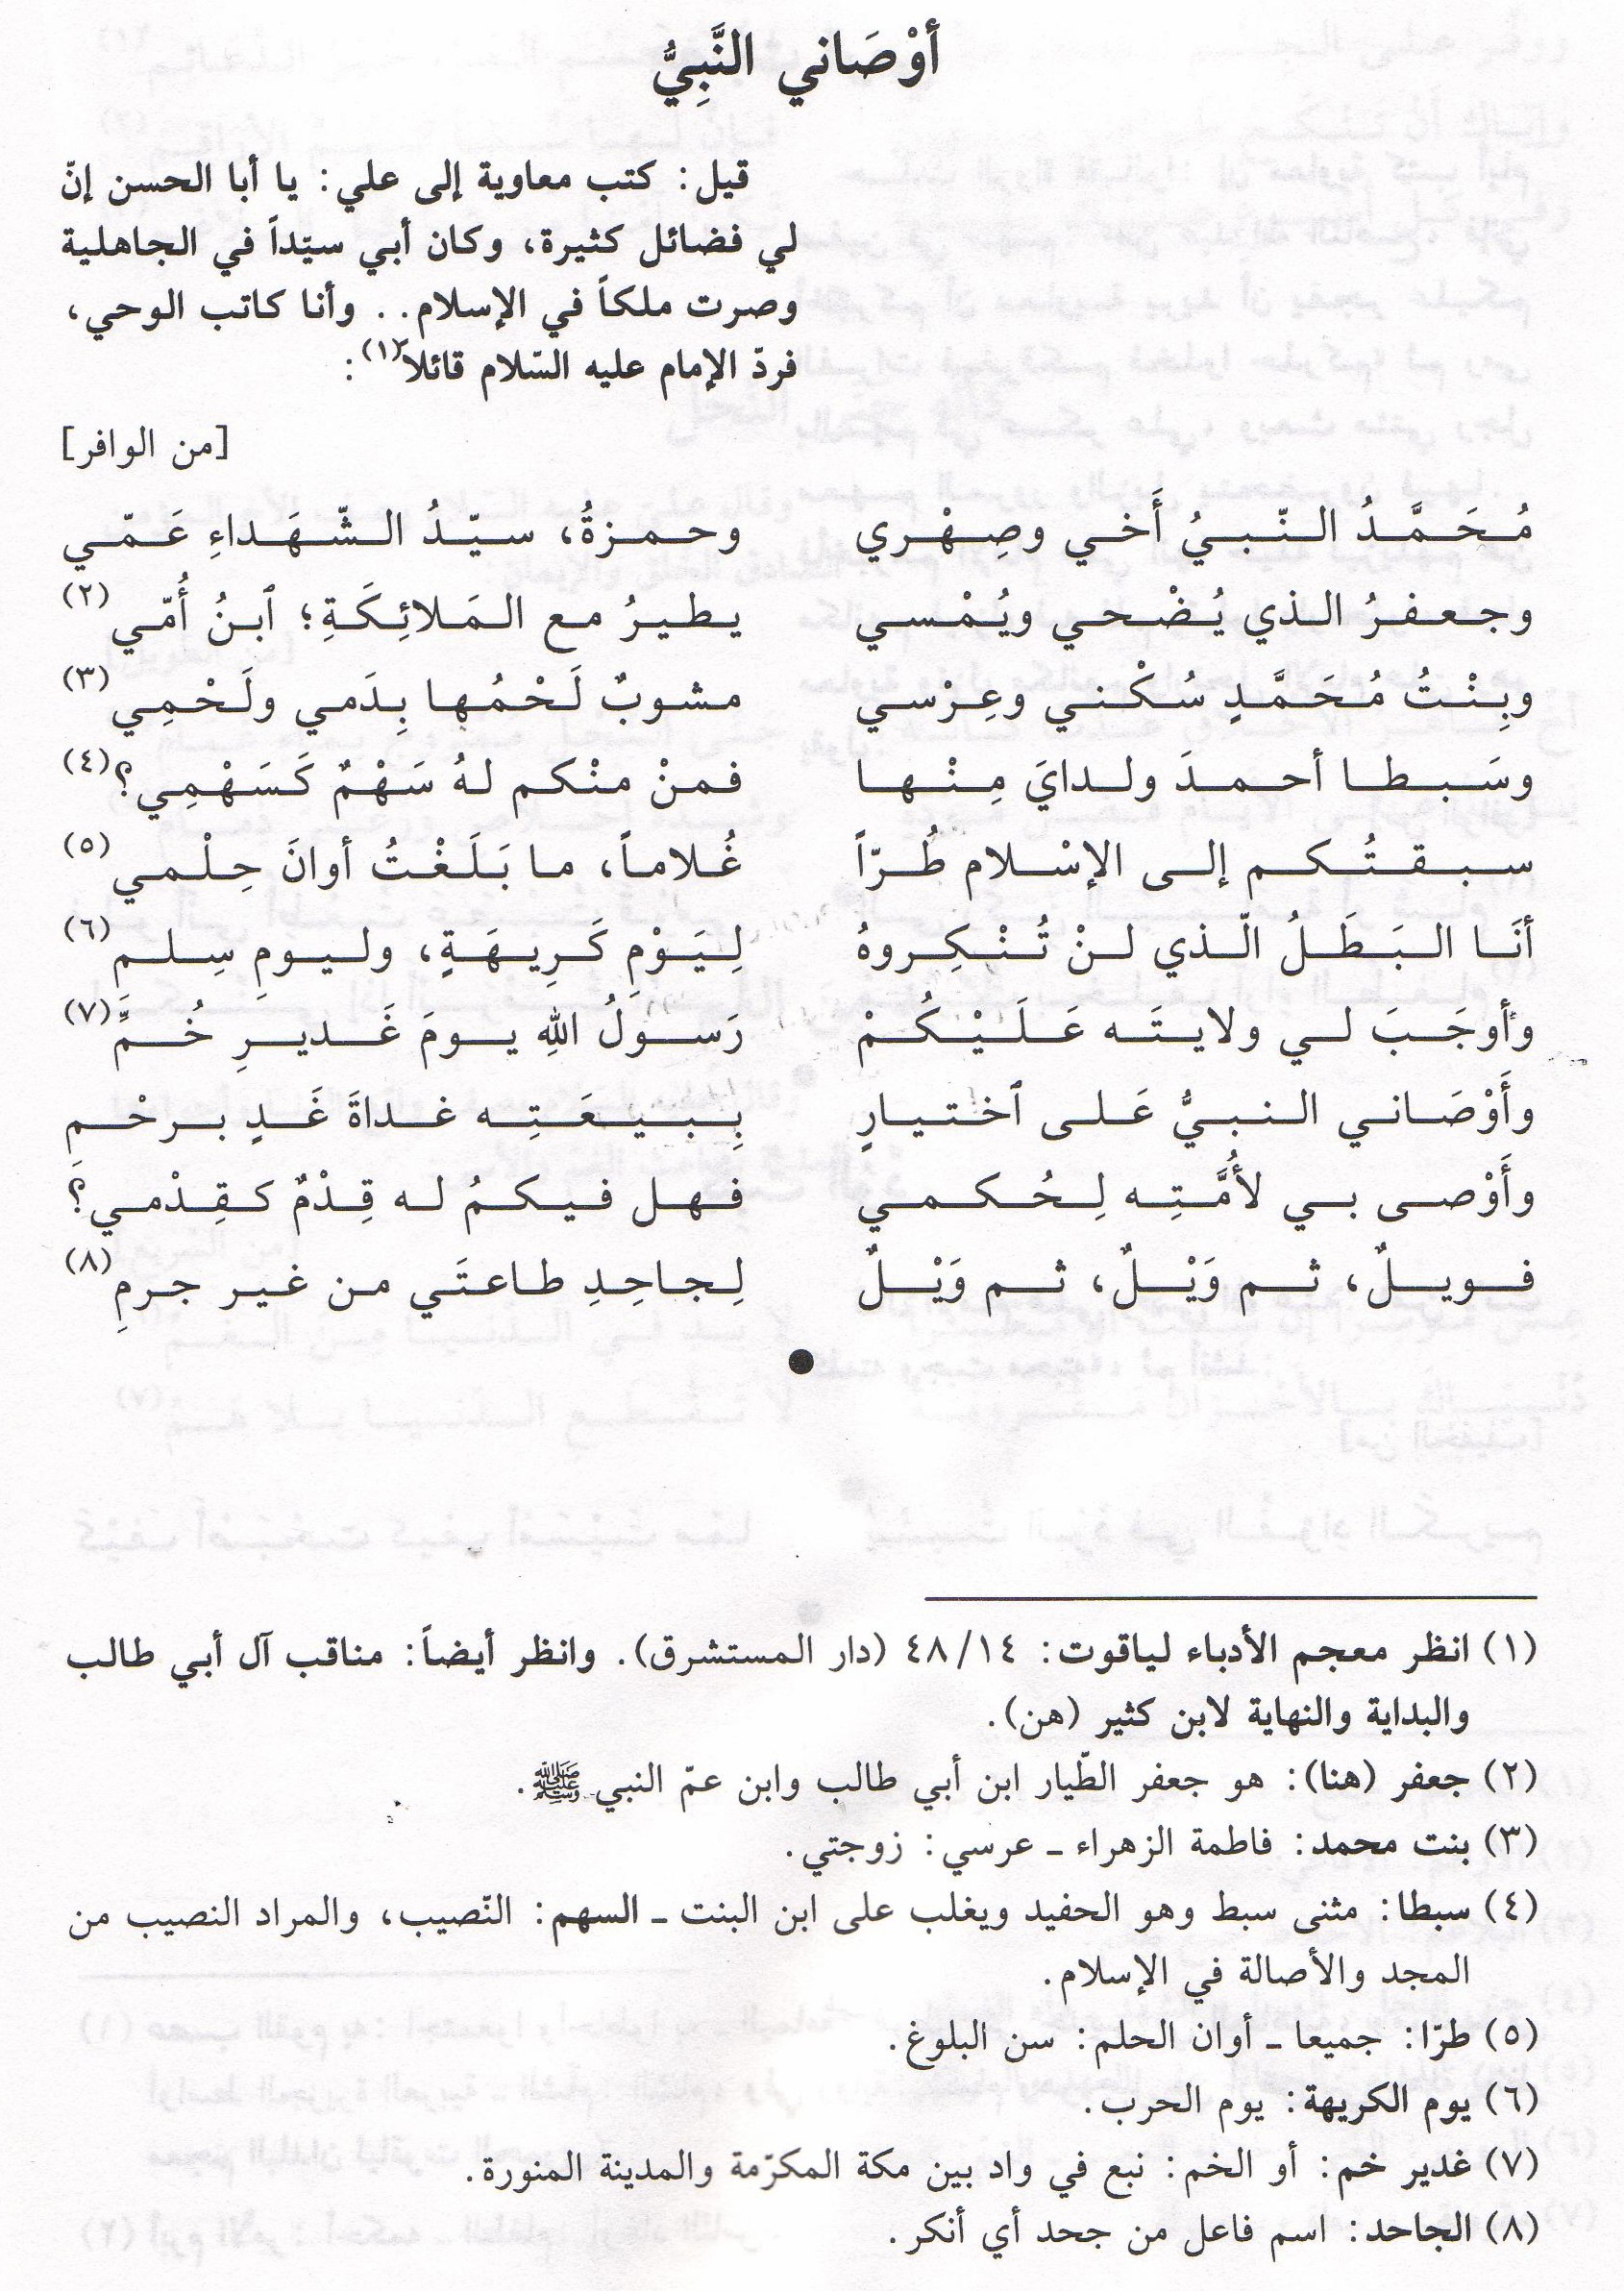 أوْصَاني النَّبِيُّ
قيل: كتب معاوية إلى علي: يا أبا الحسن إنّ
لي فضائل كثيرة، وكان أبي سيّداً في الجاهلية
وصرت ملكاً في الإسلام.. وأنا كاتب الوحي،
فردّ الإمام عليه السّلام قائلاً(١):
[من الوافر]
مُحَمَّدُ النّبيُ أَخي وصِهْري وحمزةُ، سيّدُ الشّهَداءِ عَمّي
وجعفرُ الذي يُضْحي ويُمْسي يطيرُ مع المَلائِكَةِ؛ ٱبنُ أُمّي(٢)
وبِنْتُ مُحَمَّدٍ سُكْني وعِرْسي مشوبٌ لَحْمُها بِدَمي ولَحْمِي(٣)
وسَبطا أحمدَ ولدايَ مِنْها فمنْ منْكم لهُ سَهْمٌ كَسَهْمِي؟(٤)
سبقتُكم إلى الإسْلام طُرّاً غُلاماً، ما بَلَغْتُ أوانَ حِلْمي(٥)
أنَا البَطَلُ الّذي لنْ تُنْكِروهُ لِيَوْمِ كَرِيهَةٍ، وليومِ سِلمِ(٦)
وأوجَبَ لي ولايتَه عَلَيْكُمْ رَسولُ اللهِ يومَ غَديرِ خُمٍّ(٧)
وأَوْصَاني النبيُّ عَلى ٱختيارٍ بِبيعَتِه غداةَ غَدٍ برحْمِ
وأَوْصى بي لأُمَّتِه لِحُكمي فهل فيكمُ له قِدْمٌ كقِدْمي؟
فويلٌ، ثم وَيْلٌ، ثم وَيْلٌ لِجاحِدِ طاعتَي من غير جرمِ(٨)
(١) انظر معجم الأدباء لياقوت: ٤٨/١٤ (دار المستشرق). وانظر أيضاً: مناقب آل أبي طالب
والبداية والنهاية لابن كثير (هن).
(٢) جعفر (هنا): هو جعفر الطّيار ابن أبي طالب وابن عمّ النبي ﷺ.
(٣) بنت محمد: فاطمة الزهراء ـ عرسي: زوجتي.
(٤) سبطا: مثنى سبط وهو الحفيد ويغلب على ابن البنت ـ السهم: النّصيب، والمراد النصيب من
المجد والأصالة في الإسلام.
(٥) طرّا: جميعا ـ أوان الحلم: سن البلوغ.
(٦) يوم الكريهة: يوم الحرب.
(٧) غدير خم: أو الخم: نبع في واد بين مكة المكرّمة والمدينة المنورة.
(٨) الجاحد: اسم فاعل من جحد أي أنكر.